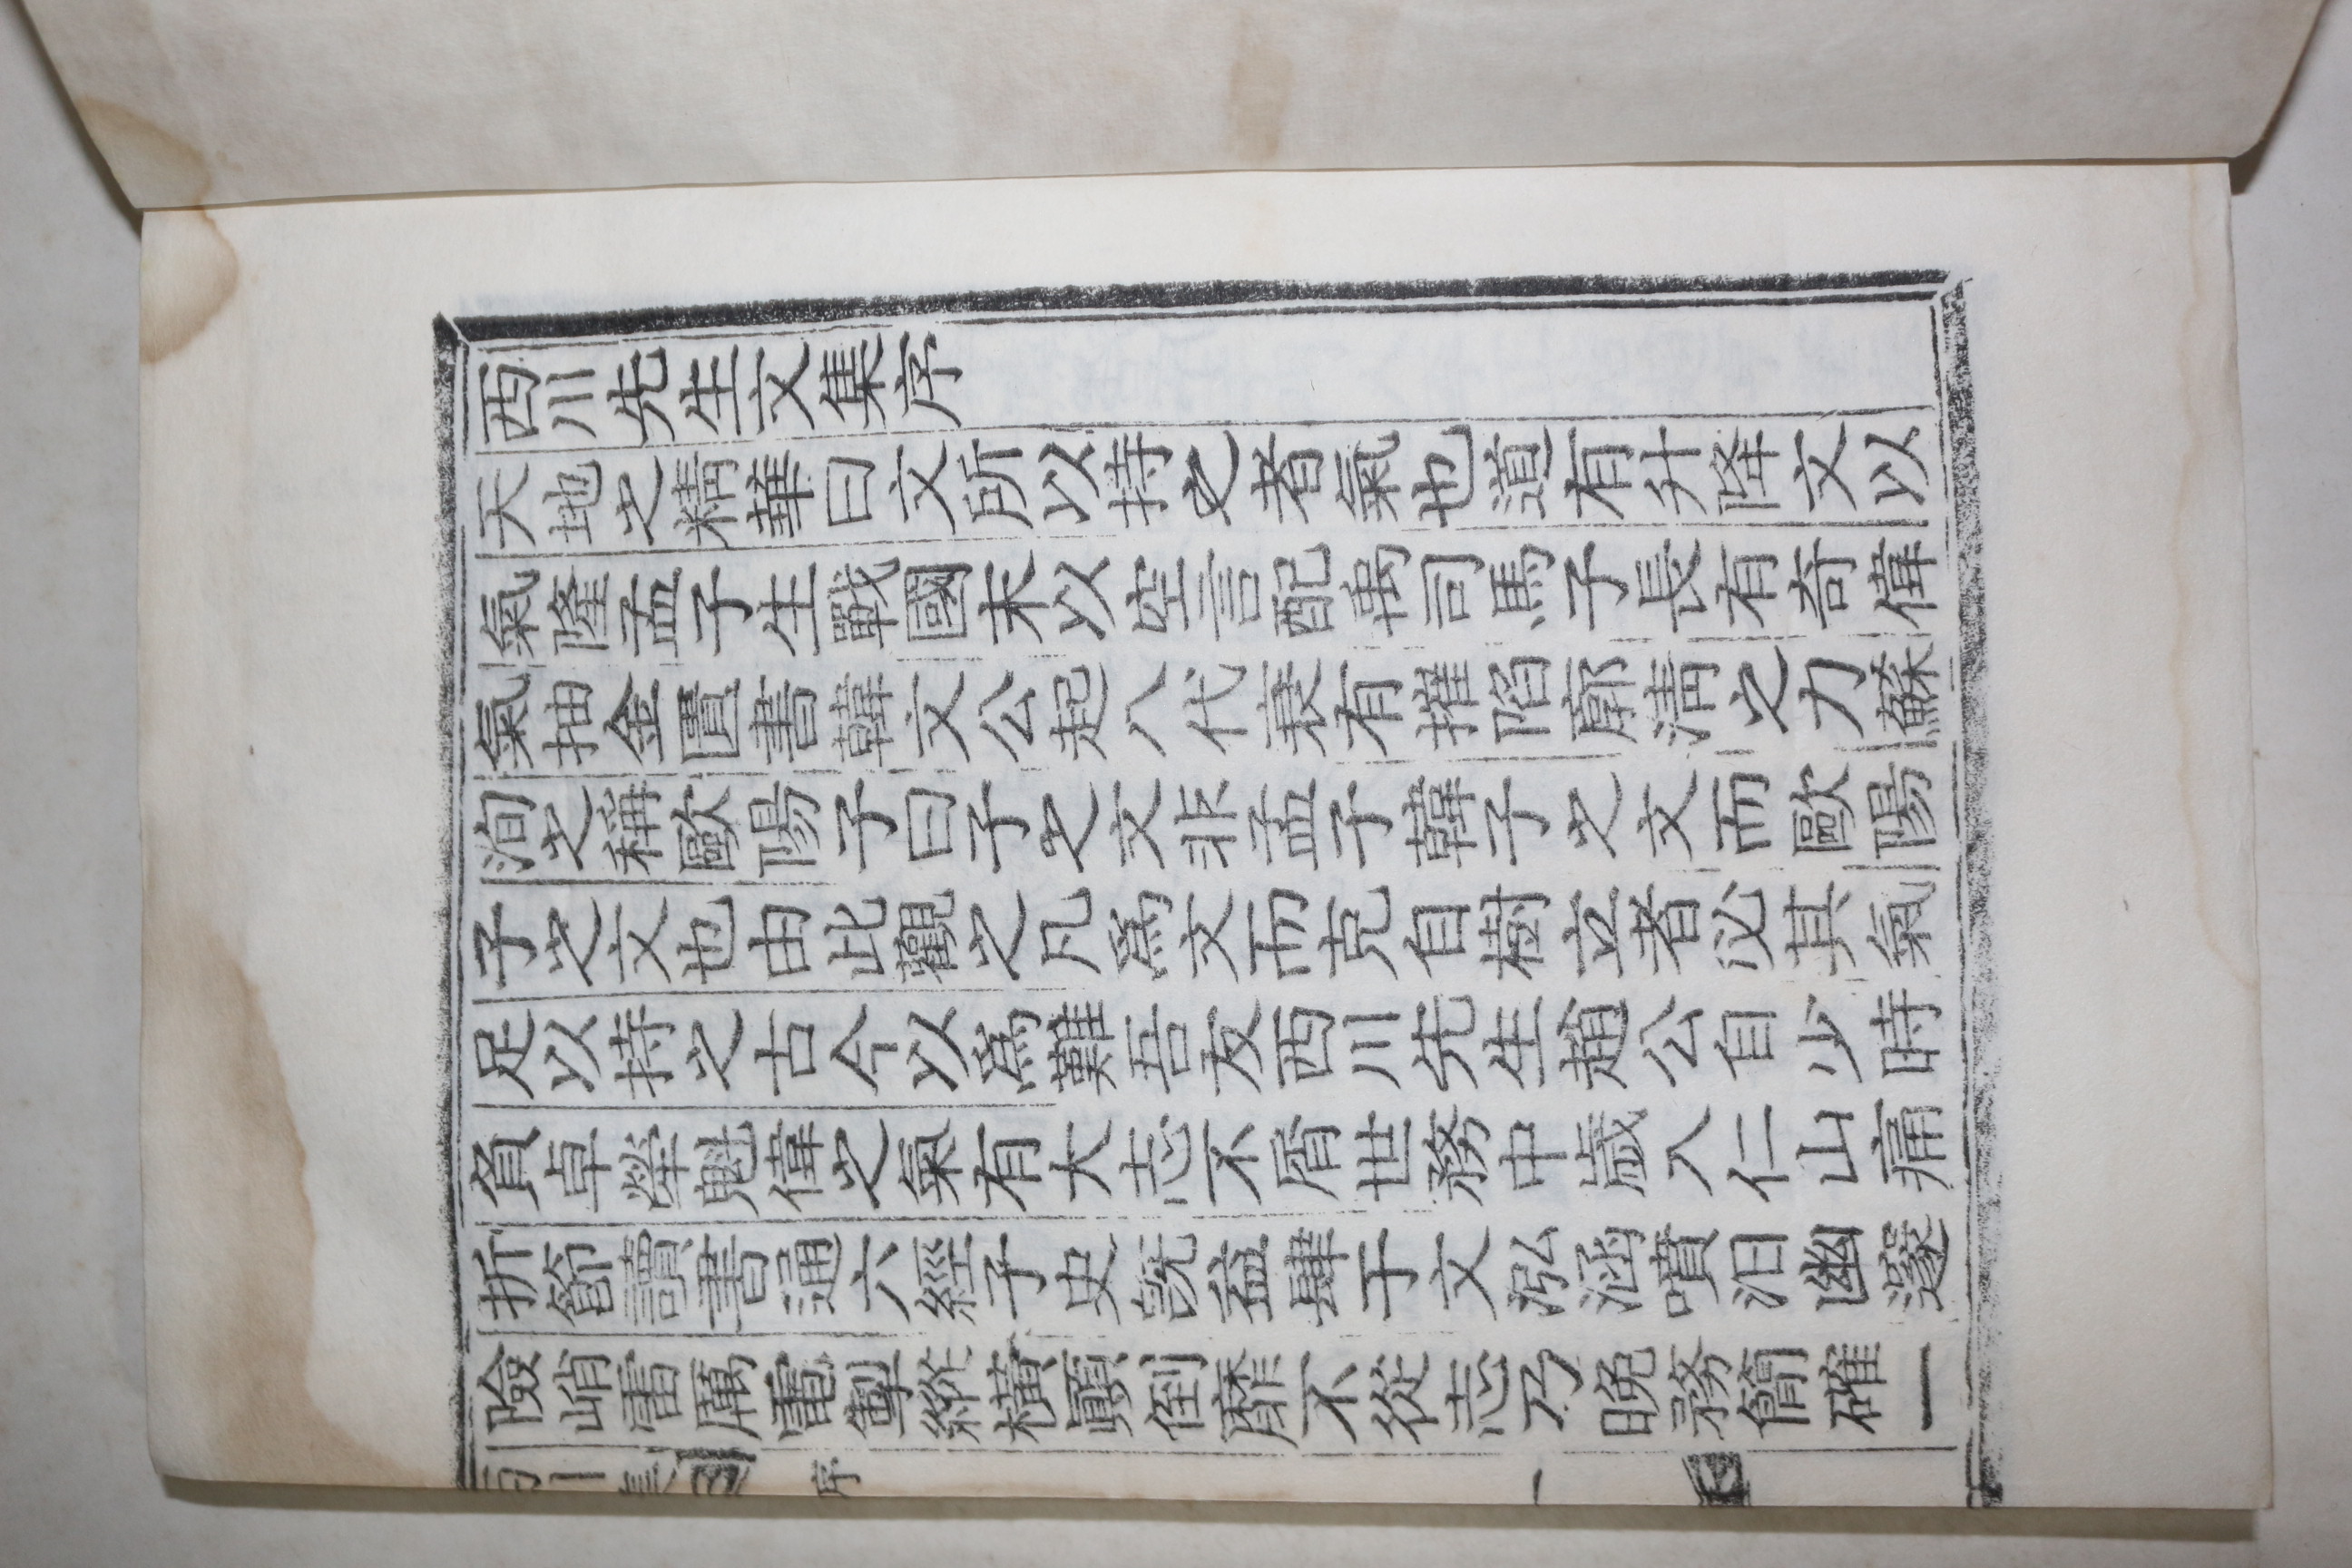 西川先生文集序
天地之精華曰文所以持之者氣也道有升降文以
氣隆孟子生戰國末以空言配禹司馬子長有奇偉
氣抽金匱書韓文公起八代衰有摧陷廓淸之力蘇
洵之稱歐陽子曰子之文非孟子韓子之文而歐陽
子之文也由此觀之凡爲文而克自樹立者必其氣
足以持之古今以爲難吾友西川先生趙公自少時
負卓犖魁偉之氣有大志不屑世務中歲入仁山痛
折節讀書通六經子史旣益肆于文泓涵噴汨幽邃
險峭雷厲電掣縱橫顚倒靡不從志乃晚務簡確一
西川集
序
一